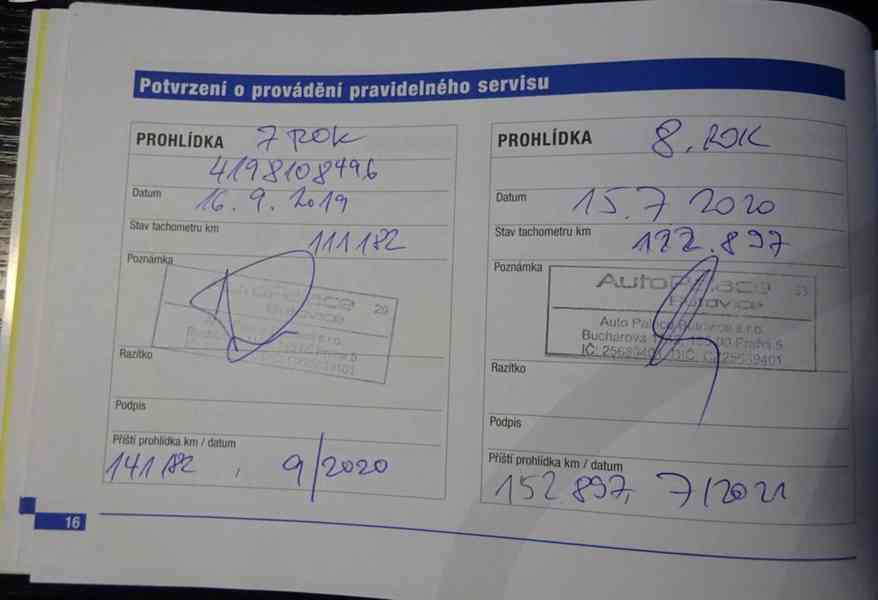 Potvrzení o provádění pravidelného servisu
PROHLÍDKA 7 ROK
4198108496
Datum 16. 9. 2019
Stav tachometru km 111182
Poznámka
20
Razítko
Podpis
Příští prohlídka km / datum
141182, 9/2020
PROHLÍDKA 8. ROK
Datum 15.7 2020
Stav tachometru km 122.897
Poznámka
AutoPalace 23
Butovice
Auto Palace Butovice s.r.o.
Bucharova Praha 5
IČ: 25639401, DIČ: CZ25639401
Razítko
Podpis
Příští prohlídka km / datum
152 897, 7/2021
16